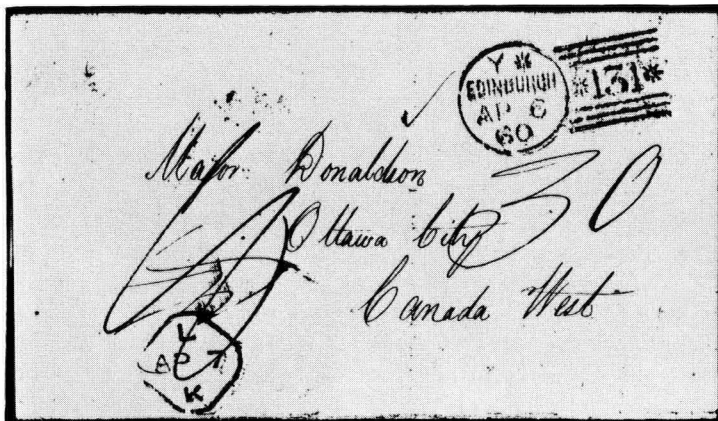 Y *
EDINBURGH
AP 6
60
*131*
Major Donaldson
30
Ottawa City
Canada West
L
AP 7
K